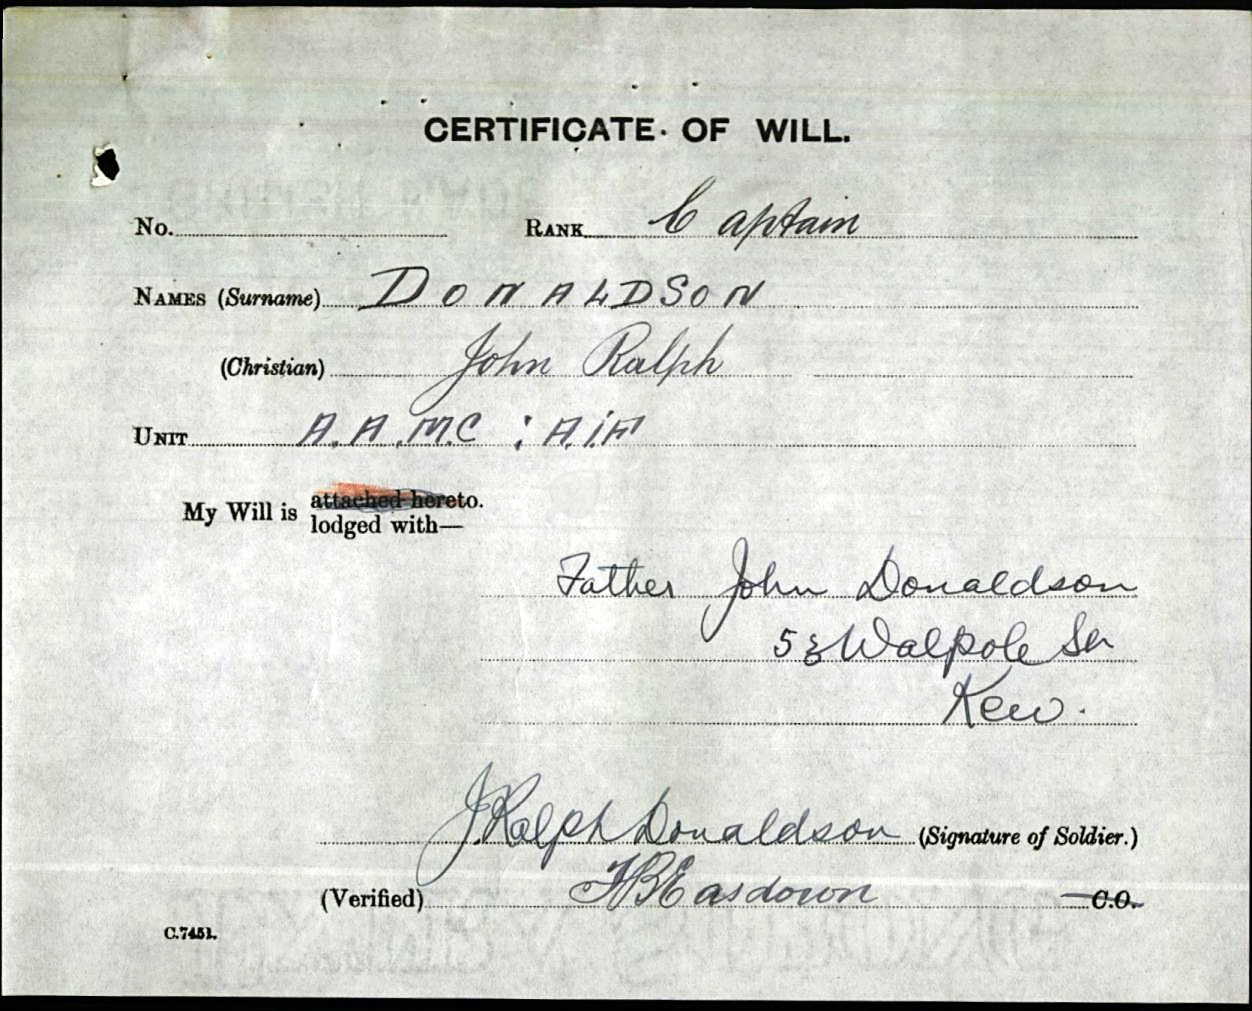 CERTIFICATE OF WILL.
No. RANK Captain
NAMES (Surname) DONALDSON
(Christian) John Ralph
UNIT A.A.M.C : A.I.F
My Will is attached hereto.
lodged with—
Father John Donaldson
53 Walpole St
Kew.
J. Ralph Donaldson (Signature of Soldier.)
(Verified) Easdown C.O.
C.7451.